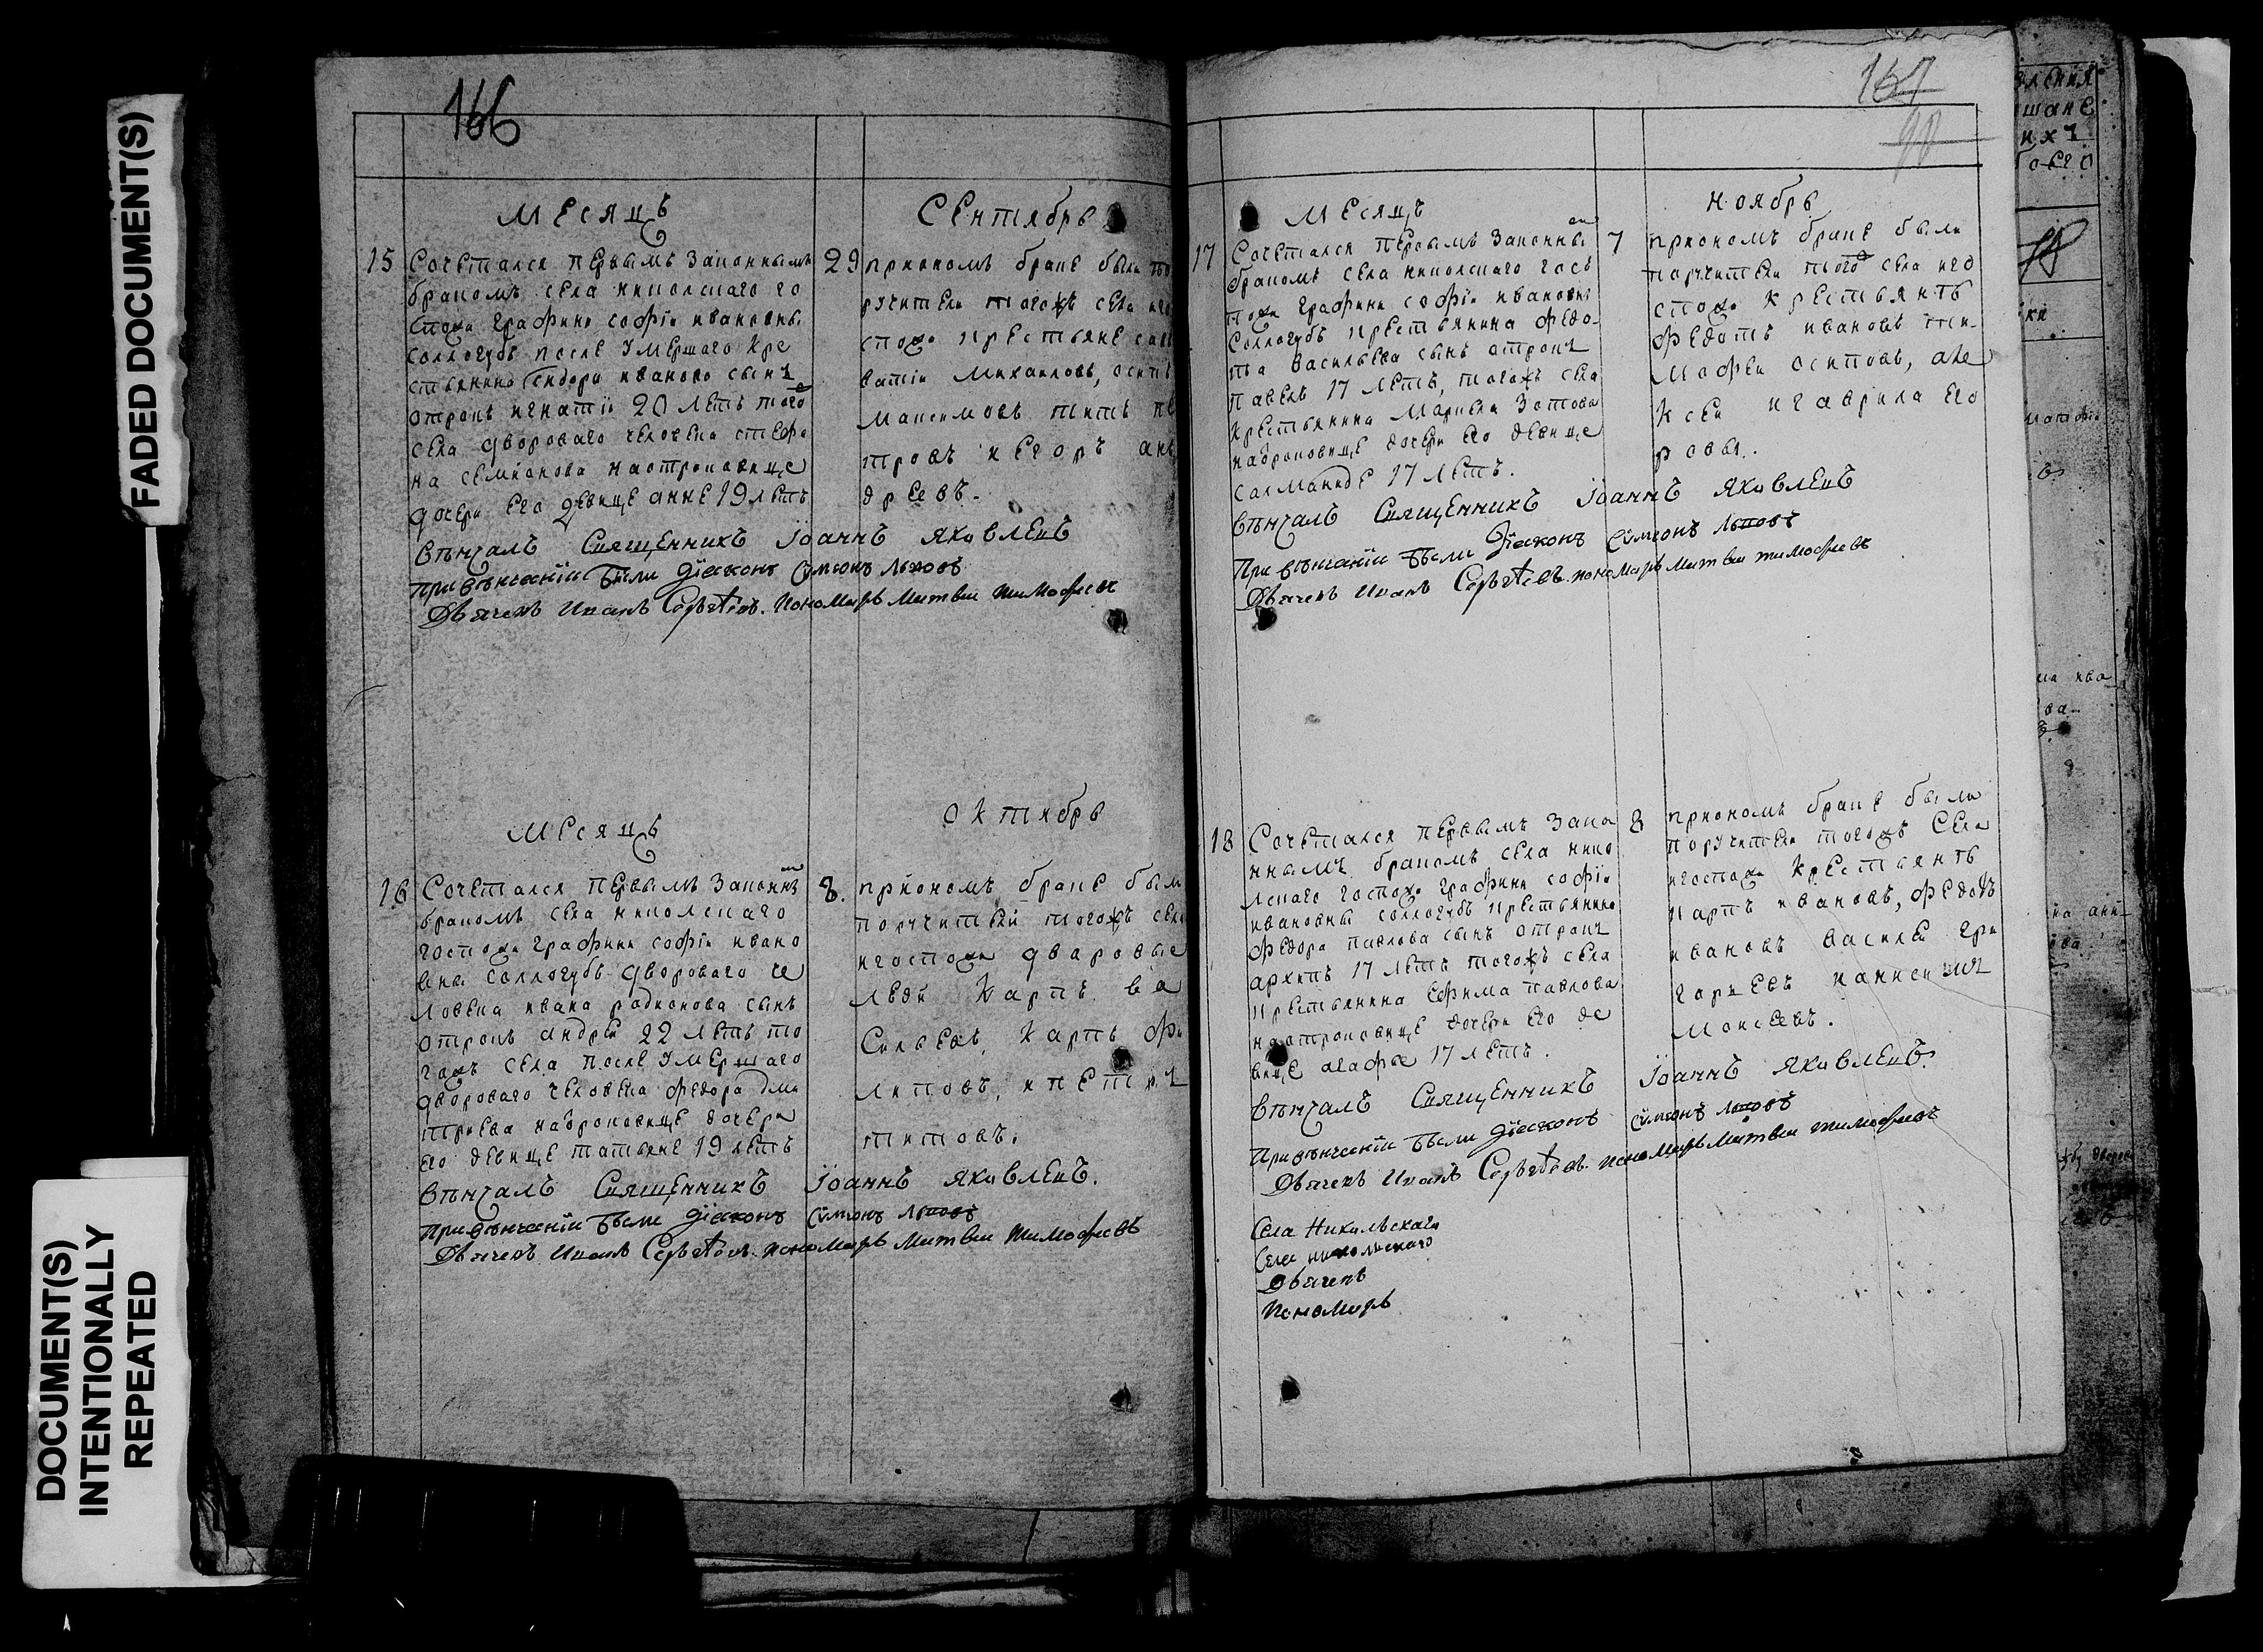 FADED DOCUMENT(S)
DOCUMENT(S)
INTENTIONALLY
REPEATED
166
Месяцъ
Сентябрь
15
Сочетался первымъ законнымъ
бракомъ села никольскаго го
спожи графини софiи ивановны
соллогубъ после умершаго кре
стьянина Сидора иванова сынъ
отрокъ игнатiи 20 летъ тогоже
села двороваго человека стефа
на семионова наотроковице
дочери его девице анне 19 летъ
29
приономъ браке были по
ручители тогожъ села
спожи крестьяне
ватiи Михаиловъ, осипъ
Максимовъ титъ
тровъ иегоръ ан
дреевъ.
Венчалъ Священникъ Iоаннъ Яковлевъ
При венчанiи были Дiаконъ Симионъ Львовъ
Дьячекъ Иванъ Сергеевъ. пономарь Матвеи тимофеевъ
Месяцъ
Октябрь
16
Сочетался первымъ законны
бракомъ села николскаго
госпожи графини софiи ивано
вны соллогубъ двороваго че
ловека ивана радионова сынъ
отрокъ андреи 22 летъ то
гожъ села после умершаго
двороваго человека федора дми
триева наотроковице дочери
его девице татьяне 19 летъ
8.
приономъ браке были
поручители тогожъ села
игоспожи дваровые
люди Карпъ ва
Сильевъ, Карпъ фи
липовъ, ипетръ
титовъ.
Венчалъ Священникъ Iоаннъ Яковлевъ.
При венчанiи были Дiаконъ Симионъ Львовъ
Дьячекъ Иванъ Сергеевъ. пономарь Матвеи Тимофеевъ
167
Месяцъ
ноябрь
17
Сочетался первымъ законны
бракомъ села николскаго гос
пожи графини софiи ивановны
Соллогубъ крестьянина Федо-
та Васильева сынъ отрокъ
Павелъ 17 летъ, тогожъ села
крестьянина Маркела Зотова
наотроковице дочери его девице
Саламаниде 17 летъ.
7
приономъ браке были
поручители тогоже села иго
спожи Крестьянъ
Федотъ ивановъ ти-
мофеи осиповъ, але
ксеи игаврила его
ровы.
Венчалъ Священникъ Iоаннъ Яковлевъ
При венчанiи были Дiаконъ Симионъ Львовъ
Дьячекъ Иванъ Сергеевъ. пономарь Матвеи тимофеевъ
18
Сочетался первымъ зако
ннымъ бракомъ села нико
лскаго госпожи графини софiи
ивановны соллогубъ крестьянина
федора павлова сынъ отрокъ
архипъ 17 летъ тогожъ села
крестьянина Ефима павлова
наотроковице дочери его де
вице агафье 17 летъ.
8
приономъ браке были
поручители тогожъ Села
игоспожи Крестьянъ
карпъ ивановъ, федотъ
ивановъ василеи гри
горьевъ
моисеевъ.
Венчалъ Священникъ Iоаннъ Яковлевъ.
При венчанiи были дiаконъ Симионъ Львовъ
Дьячекъ Иванъ Сергеевъ. пономарь Матвеи тимофеевъ
Села Никальскаго
Села никольскаго
Дьячекъ
Пономарь